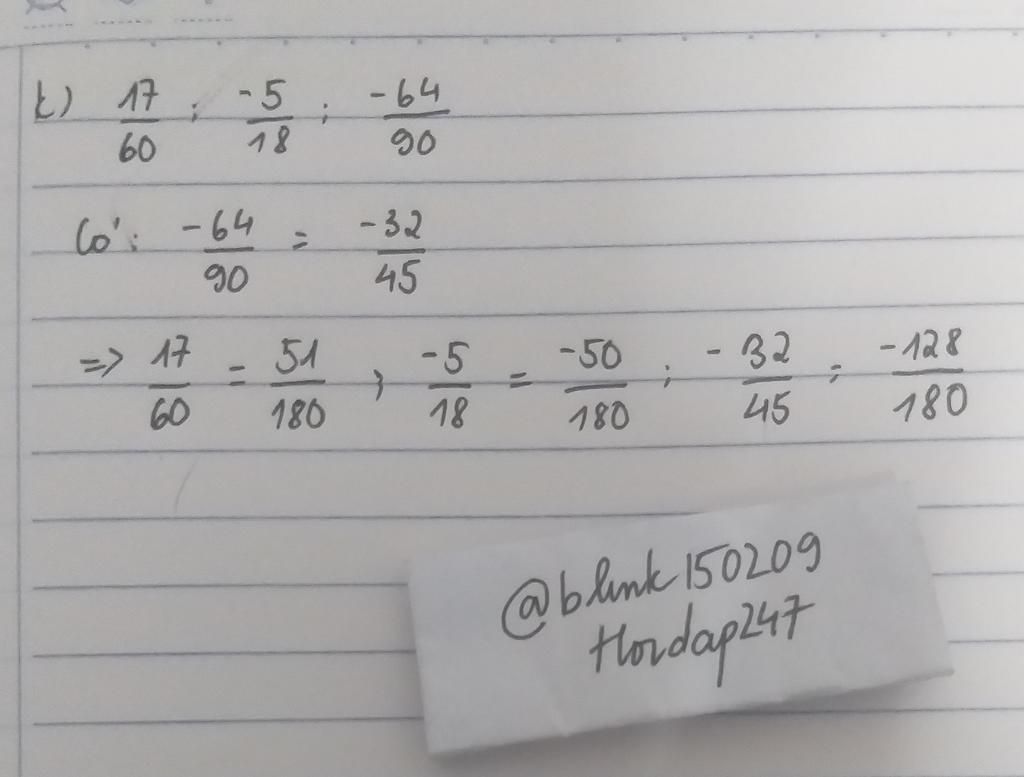 k) 17/60 ; -5/18 ; -64/90
Có: -64/90 = -32/45
=> 17/60 = 51/180 ; -5/18 = -50/180 ; -32/45 = -128/180
@blink150209
Hoidap247